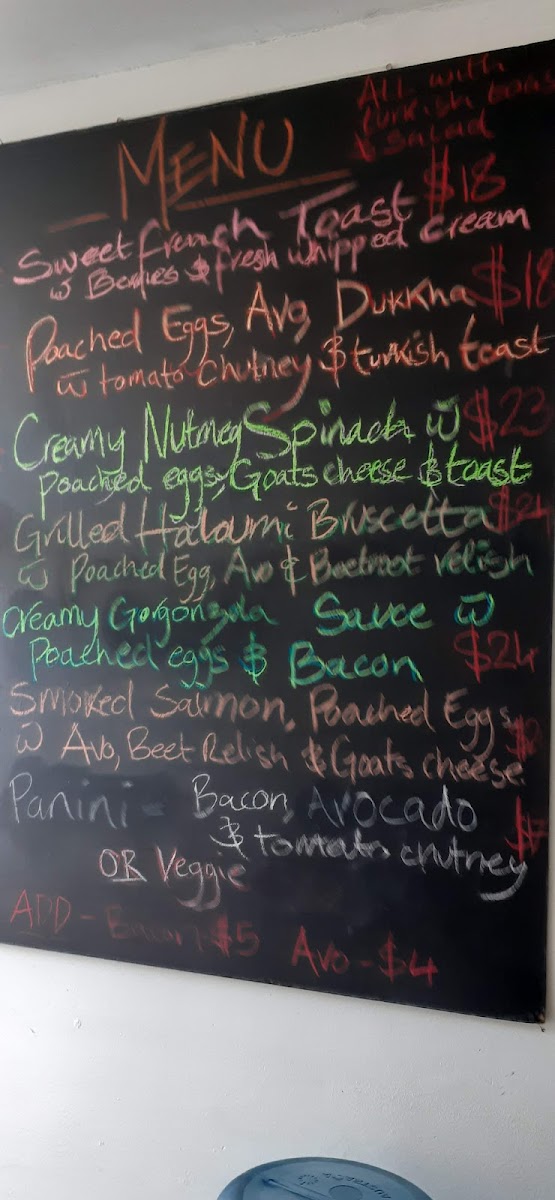 MENU
ALL with
turkish toast
& salad
Sweet french Toast $18
w Berries & fresh whipped cream
Poached Eggs, Avo, Dukkha $18
w tomato Chutney & turkish toast
Creamy Nutmeg Spinach w $23
poached eggs, Goats cheese & toast
Grilled Haloumi Bruscetta
w Poached Egg, Avo & Beetroot relish
Creamy Gorgonzola Sauce w
Poached eggs & Bacon $24
Smoked Salmon, Poached Eggs
w Avo, Beet Relish & Goats cheese
Panini - Bacon, Avocado
& tomato chutney
OR Veggie
ADD - Bacon - $5 Avo - $4